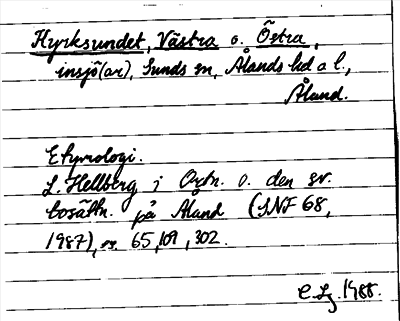 Kyrksundet, Västra o. Östra,
insjö(ar), Sunds sn, Ålands hd o l.,
Åland.
Etymologi.
L. Hellberg i Ortn. o. den sv.
bosättn. på Åland (SNF 68,
1987), s. 65, 109, 302.
1988.